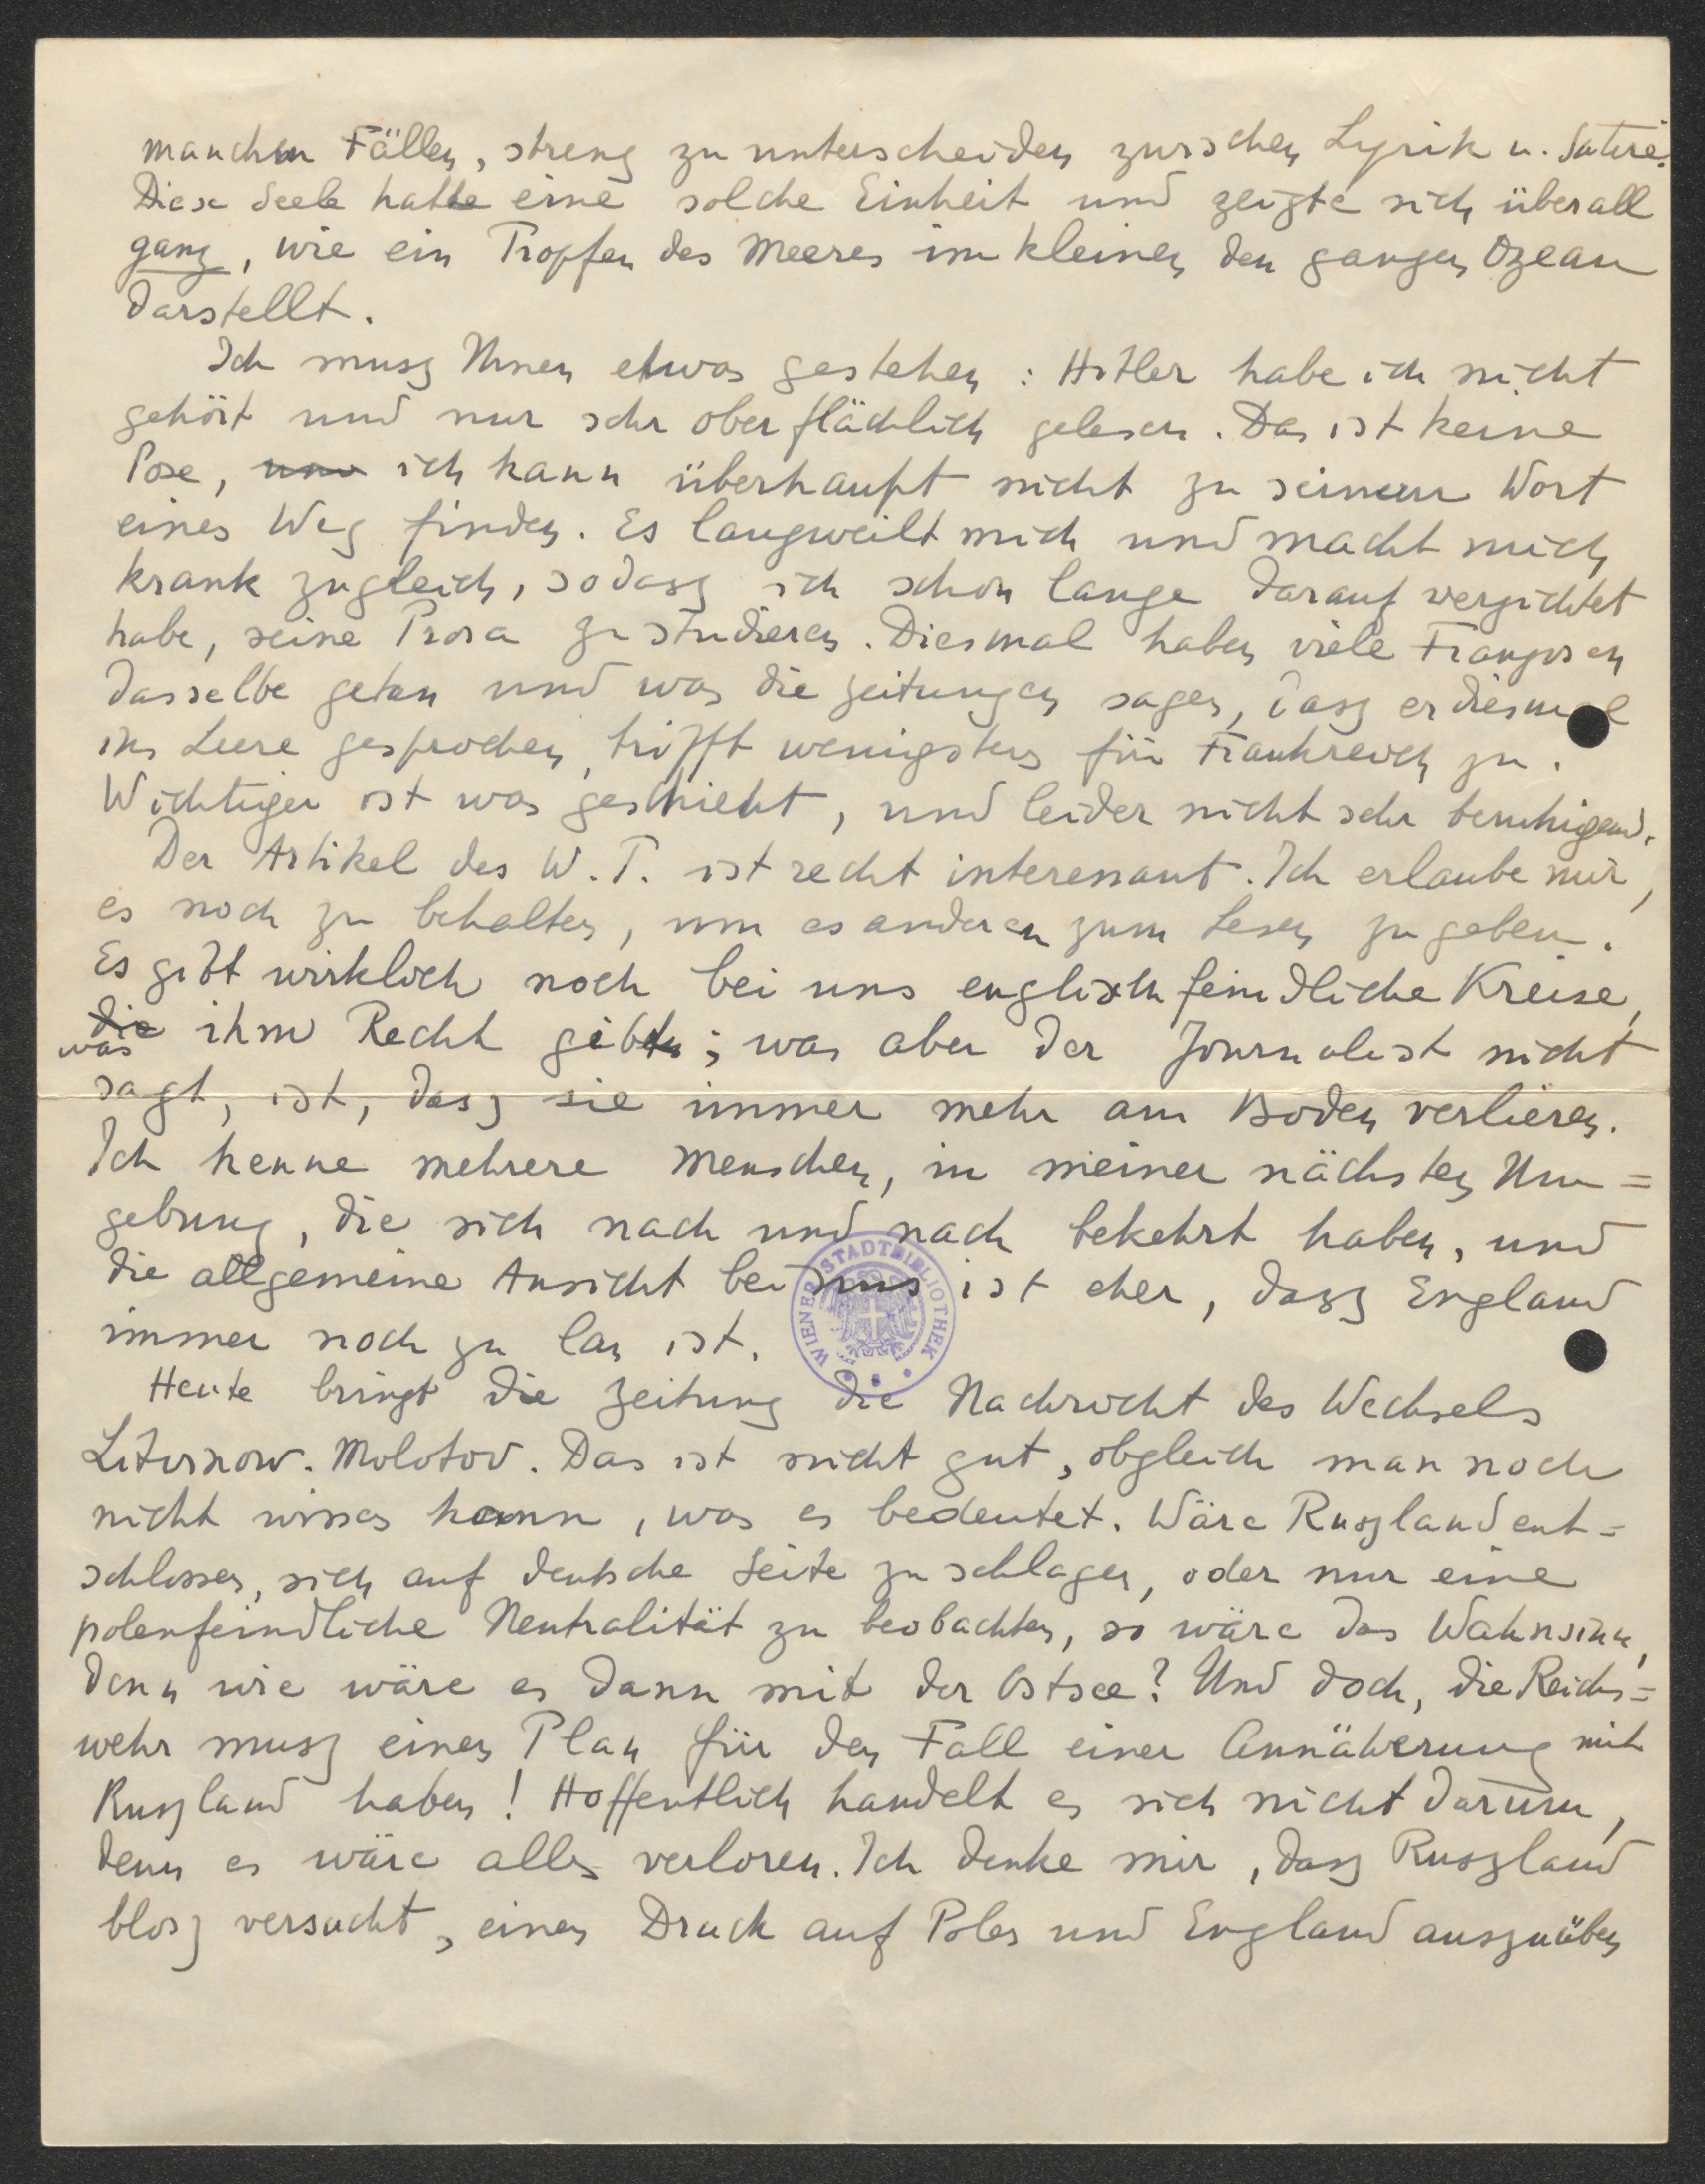 manchen Fällen, streng zu unterscheiden zwischen Lyrik u. Satire.
Diese Seele hatte eine solche Einheit und zeigte sich überall
ganz, wie ein Tropfen des Meeres im kleinen den ganzen Ozean
darstellt.
Ich musz Ihnen etwas gestehen: Hitler habe ich nicht
gehört und nur sehr oberflächlich gelesen. Das ist keine
Pose, und ich kann überhaupt nicht zu seinem Wort
einen Weg finden. Es langweilt mich und macht mich
krank zugleich, sodasz ich schon lange darauf verzichtet
habe, seine Prosa zu studieren. Diesmal haben viele Franzosen
dasselbe getan und was die Zeitungen sagen, dasz er diesmal
ins Leere gesprochen, trifft wenigstens für Frankreich zu.
Wichtiger ist was geschieht, und leider nicht sehr beruhigend.
Der Artikel des W.T. ist recht interessant. Ich erlaube mir,
es noch zu behalten, um es anderen zum Lesen zu geben.
Es gibt wirklich noch bei uns englischfeindliche Kreise,
die ihm Recht geben; was aber der Journalist nicht
was
sagt, ist, dasz sie immer mehr am Boden verlieren.
Ich kenne mehrere Menschen, in meiner nächsten Um=
gebung, die sich nach und nach bekehrt haben, und
die allgemeine Ansicht bei uns ist eher, dasz England
immer noch zu lau ist.
WIENER STADTBIBLIOTHEK
Heute bringt die Zeitung die Nachricht des Wechsels
Litvinow-Molotov. Das ist nicht gut, obgleich man noch
nicht wissen kann, was es bedeutet. Wäre Ruszland ent=
schlossen, sich auf deutsche Seite zu schlagen, oder nur eine
polenfeindliche Neutralität zu beobachten, so wäre das Wahnsinn,
denn wie wäre es dann mit der Ostsee? Und doch, die Reichs=
wehr musz einen Plan für den Fall einer Annäherung mit
Ruszland haben! Hoffentlich handelt es sich nicht darum,
denn es wäre alles verloren. Ich denke mir, dasz Ruszland
blosz versucht, einen Druck auf Polen und England auszuüben